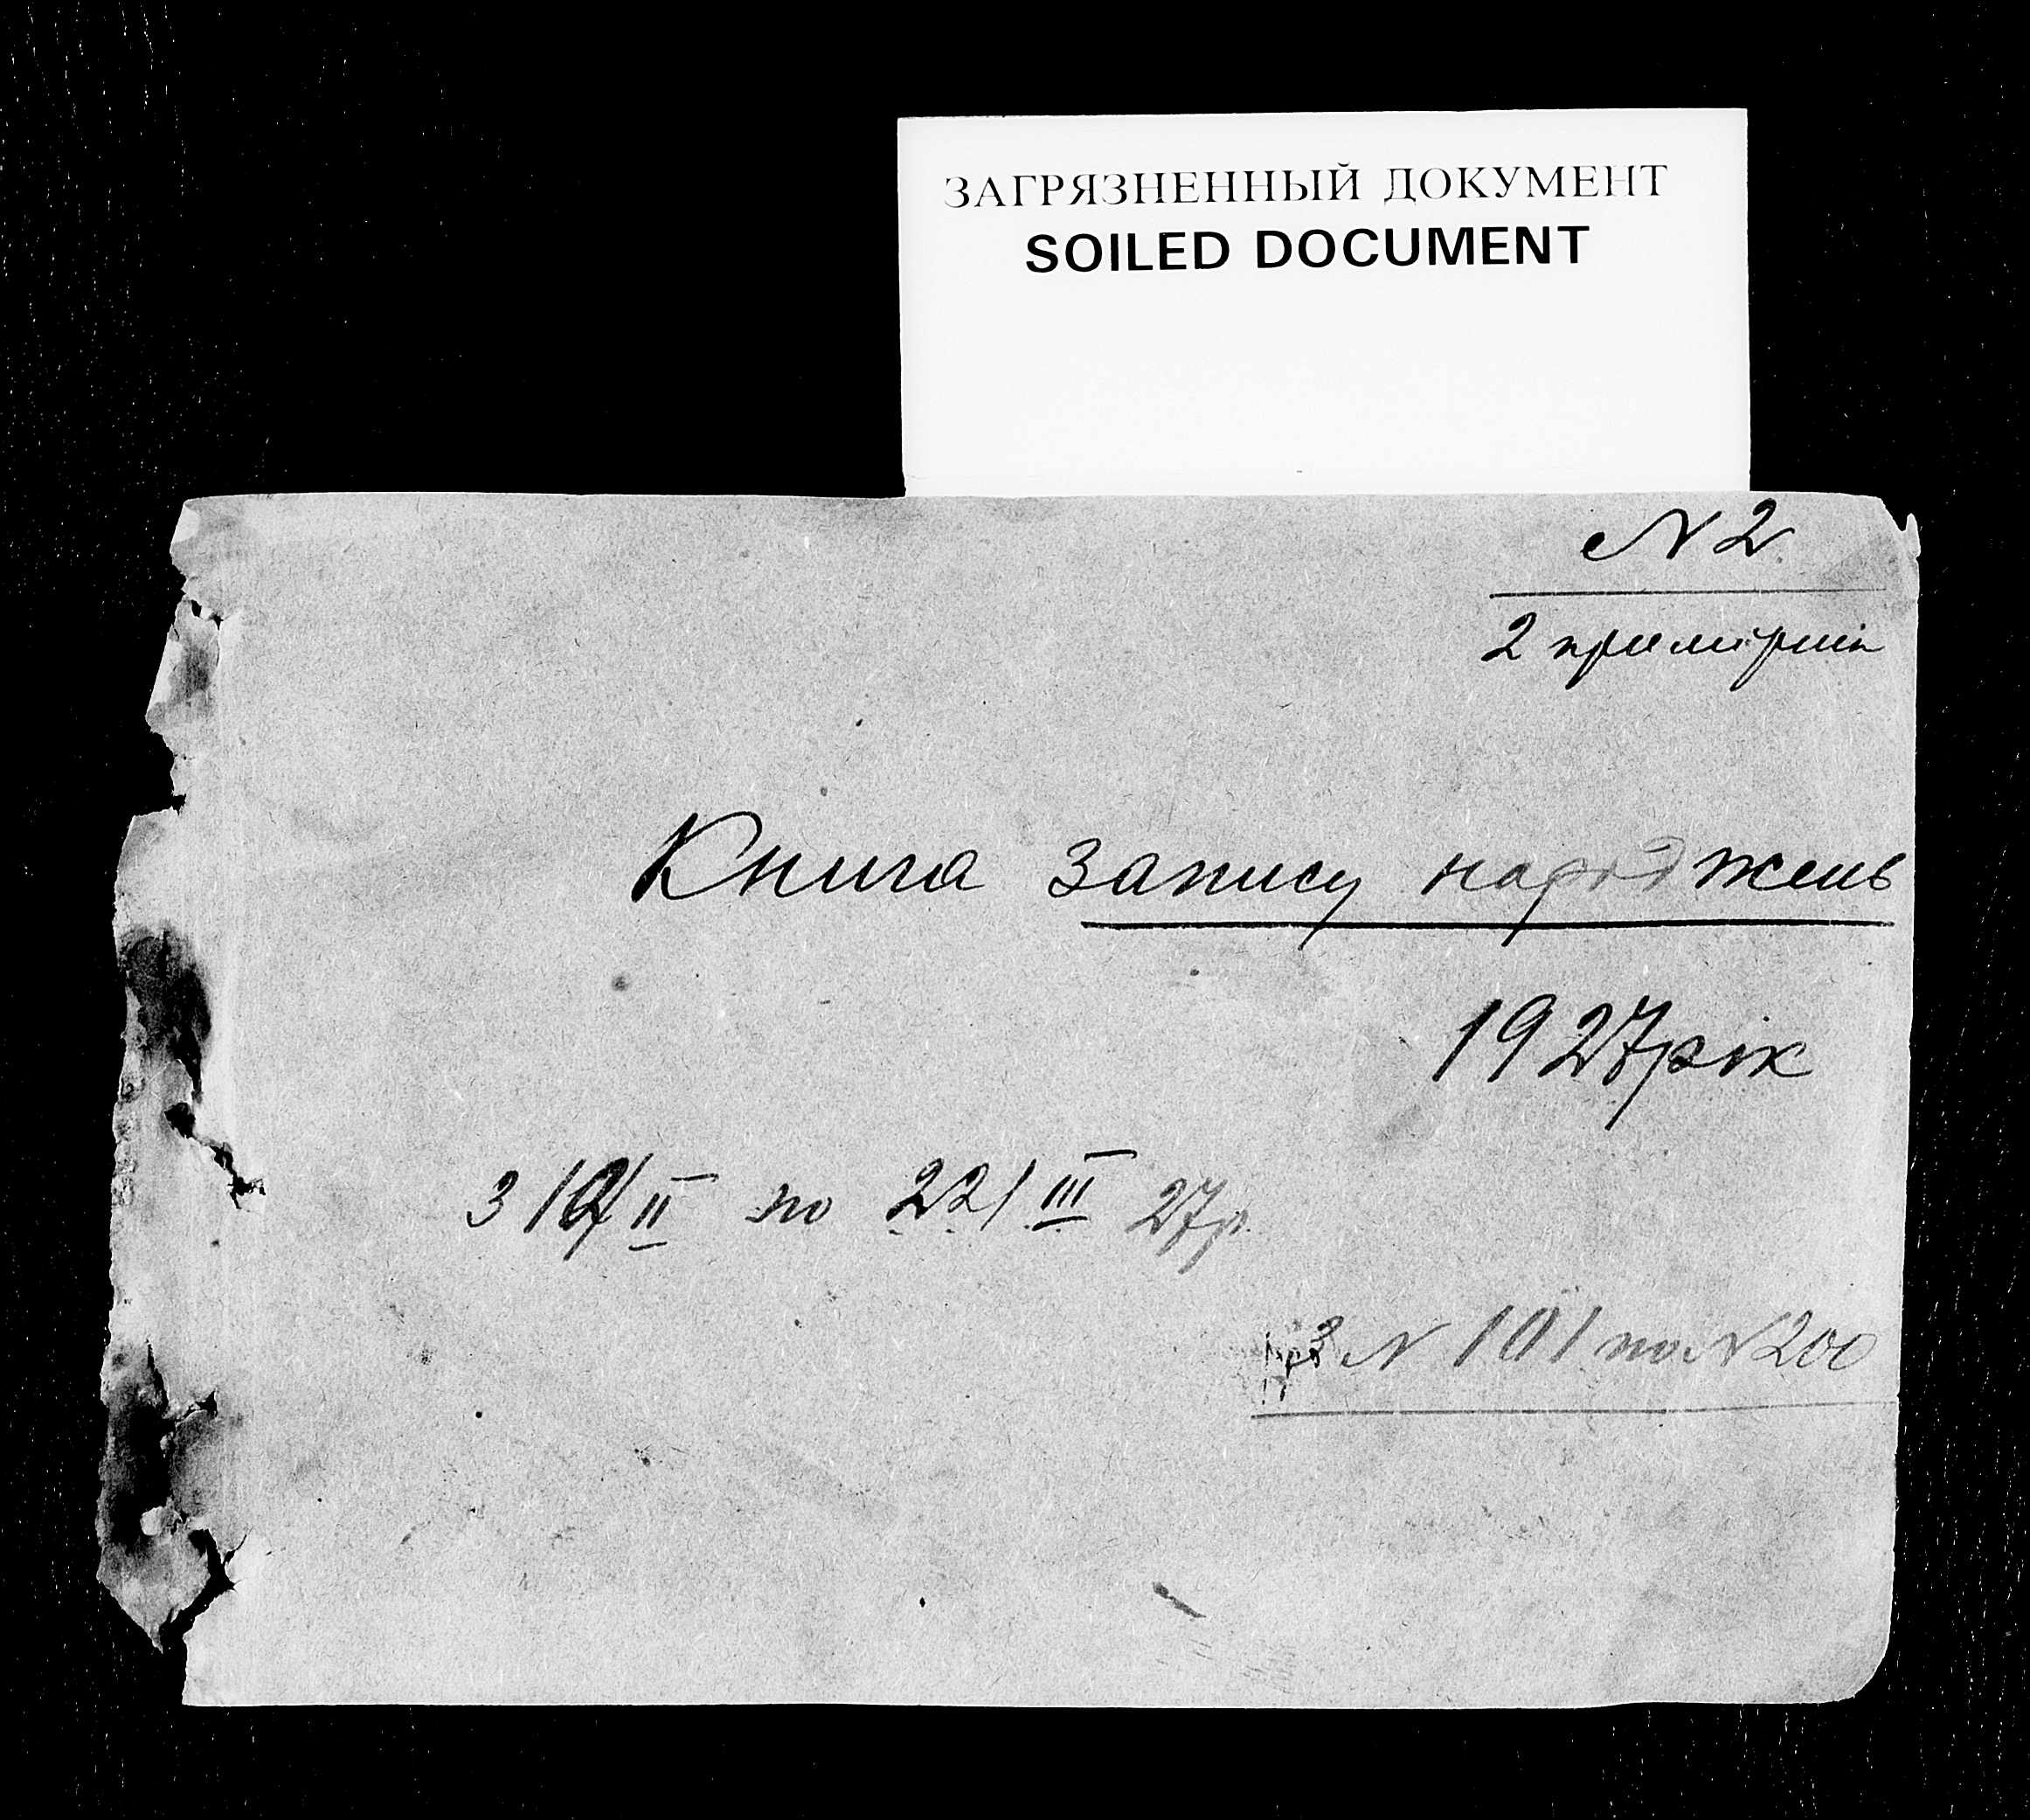 ЗАГРЯЗНЕННЫЙ ДОКУМЕНТ
SOILED DOCUMENT
N 2
2 примірник
Книга запису народжень
1927 рік
З II по 22/III 27р.
з N 101 по N 200